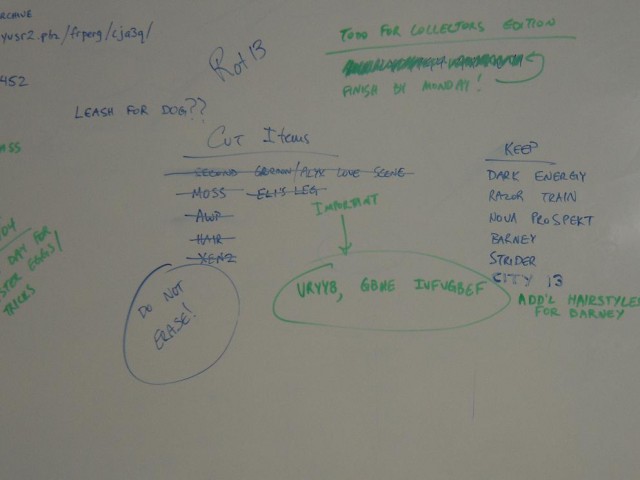 ARCHIVE
yusr2.pbz/frperg/cja3q/
452
Rot 13
TODO FOR COLLECTORS EDITION
FINISH BY MONDAY!
LEASH FOR DOG??
ASS
CUT ITEMS
SECOND GORDON/ALYX LOVE SCENE
MOSS ELI'S LEG
AWP
HAIR
XEN2
IMPORTANT
URYYB, GBNE IVFVGBEF
DO NOT
ERASE!
KEEP
DARK ENERGY
RAZOR TRAIN
NOVA PROSPEKT
BARNEY
STRIDER
CITY 13
ADD'L HAIRSTYLES
FOR BARNEY
DAY FOR
STER EGGS/
TRICKS